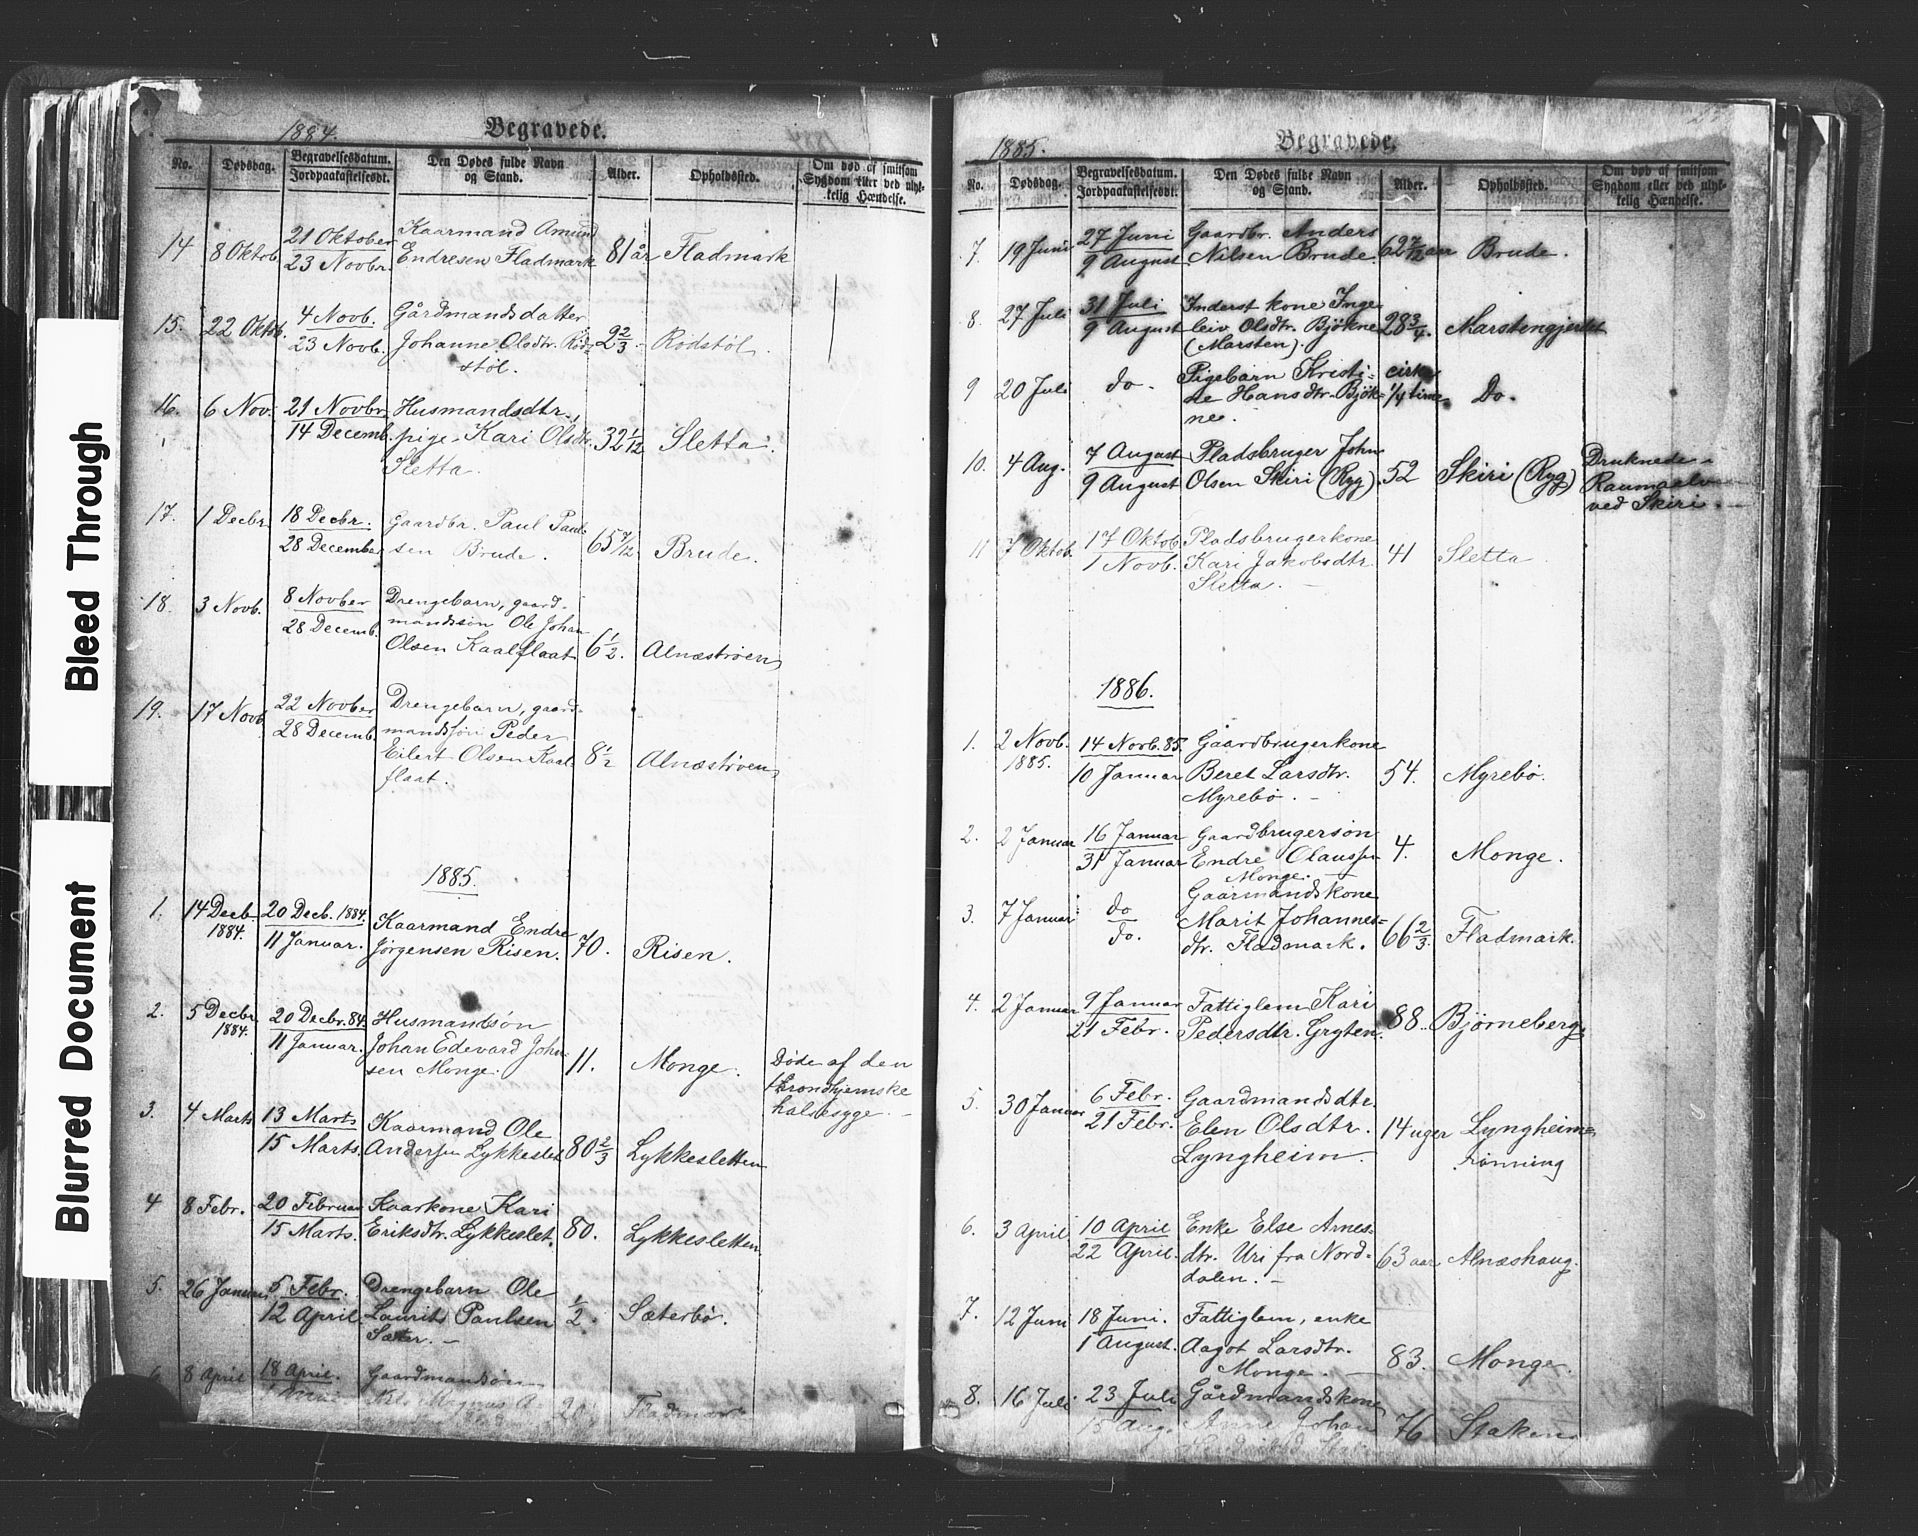 Bleed Through
Blurred Document
1884.
Begravede.
No.
Dødsdag.
Begravelsesdatum.
Jordpaakastelsesdt.
Den Dødes fulde Navn
og Stand.
Alder.
Opholdssted.
Om død af smitsom
Sygdom eller ved ulyk-
kelig Hændelse.
14 8 Oktob. 21 Oktober Kaarmand Amund
23 Novbr. Endresen Fladmark 81 år Fladmark
15. 22 Oktob. 4 Novb. Gårdmandsdatter
23 Novb. Johanne Olsdtr. Röd- 2 2/3 Rödstöl.
stöl.
16. 6 Nov. 21 Novbr. Husmandsdtr.,
14 Decemb. pige Kari Olsdtr. 32 1/12 Sletta.
Sletta.
17. 1 Decbr. 18 Decbr. Gaardbr. Paul Paul-
28 December sen Brude. 65 7/12 Brude.
18. 3 Novb. 8 Novber Drengebarn, gaard-
28 Decemb. mandssön Ole Johan
Olsen Kaalflaat 6 1/2. Alnæströen
19. 17 Novb. 22 Novber Drengebarn, gaard-
28 Decemb. mandssön Peder
Eilert Olsen Kaal 8 1/2 Alnæströen
flaat.
1885.
1. 14 Decb. 1884. 20 Decb. 1884. Kaarmand Endre
11 Januar. Jörgensen Risen. 70. Risen.
2. 5 Decbr. 1884. 20 Decbr. 84. Husmandsön
11 Januar. Johan Edevard John-
sen Monge. 11. Monge. Döde af den
trondhjemske
halssyge. —
3. 4 Marts 13 Marts Kaarmand Ole
15 Marts. Andersen Lykkeslet 80 2/3 Lykkesletten
4 8 Febr. 20 Februar Kaarkone Kari
15 Marts. Eriksdtr. Lykkeslet. 80. Lykkesletten
5. 26 Januar 5 Febr. Drengebarn Ole
12 April. Laurits Paulsen 1/2. Sæterbö.
Sæter. —
6 8 April 18 April. Gaardmandsön
Mai Magnus 20 Fladmark
1885.
Begravede.
No.
Dødsdag.
Begravelsesdatum.
Jordpaakastelsesdt.
Den Dødes fulde Navn
og Stand.
Alder.
Opholdssted.
Om død af smitsom
Sygdom eller ved ulyk-
kelig Hændelse.
7. 19 Juni 27 Juni Gaardbr. Anders
9 August Nilsen Brude. 62 7/12 aar Brude.
8. 27 Juli 31 Juli Inderst kone Inge
9 August leiv Olsdtr. Bjökne 28 3/4. Marstengjerdet
(Marsten).
9 20 Juli do. Pigebarn Kristi- cirka
ne Hansdtr. Bjök- 1/4 time Do.
ne.
10. 4 Aug. 7 August Pladsbruger John
9 August Olsen Skiri (Ryg). 52 Skiri (Ryg) Druknede i
Raumaelven
ved Skiri. —
11 7 Oktob. 17 Oktob. Pladsbrugerkone
1 Novb. Kari Jakobsdtr. 41 Sletta
Sletta. —
1886.
1. 2 Novb. 1885. 14 Novb. 85. Gaardbrugerkone
10 Januar Beret Larsdtr. 54. Myrebö.
Myrebö. —
2. 2 Januar 16 Januar Gaardbrugersön
31 Januar Endre Olaussen 4. Monge.
Monge.
3. 7 Januar do Gaarmandskone
do. Marit Johannes-
dtr. Fladmark. 66 2/3. Fladmark.
4. 2 Januar 9 Januar Fattiglem Kari
21 Febr. Pedersdtr. Gryten. 88. Björneberg
5. 30 Januar 6 Febr. Gaardmandsdtr.
21 Febr. Elen Olsdtr. 14 uger Lyngheim-
Lyngheim. rönning
6. 3 April 10 April Enke Else Arnes-
22 April. dtr. Uri fra Nord- 63 aar Alnæshaug.
dalen. —
7. 12 Juni 18 Juni. Fattiglem, enke
1 August. Aagot Larsdtr.
Monge. — 83. Monge.
8. 16 Juli. 23 Juli Gårdmandskone
15 Aug. Anne Johan 76 Staken